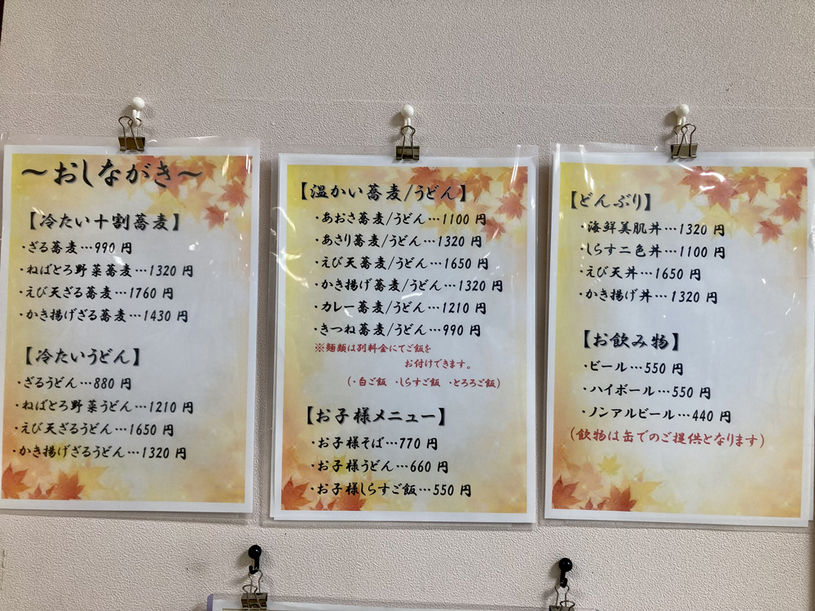 ～おしながき～
【冷たい十割蕎麦】
・ざる蕎麦…990 円
・ねばとろ野菜蕎麦…1320 円
・えび天ざる蕎麦…1760 円
・かき揚げざる蕎麦…1430 円
【冷たいうどん】
・ざるうどん…880 円
・ねばとろ野菜うどん…1210 円
・えび天ざるうどん…1650 円
・かき揚げざるうどん…1320 円
【温かい蕎麦/うどん】
・あおさ蕎麦/うどん…1100 円
・あさり蕎麦/うどん…1320 円
・えび天蕎麦/うどん…1650 円
・かき揚げ蕎麦/うどん…1320 円
・カレー蕎麦/うどん…1210 円
・きつね蕎麦/うどん…990 円
※麺類は別料金にてご飯を
お付けできます。
（・白ご飯 ・しらすご飯 ・とろろご飯）
【お子様メニュー】
・お子様そば…770 円
・お子様うどん…660 円
・お子様しらすご飯…550 円
【どんぶり】
・海鮮美肌丼…1320 円
・しらす二色丼…1100 円
・えび天丼…1650 円
・かき揚げ丼…1320 円
【お飲み物】
・ビール…550 円
・ハイボール…550 円
・ノンアルビール…440 円
（飲物は缶でのご提供となります）